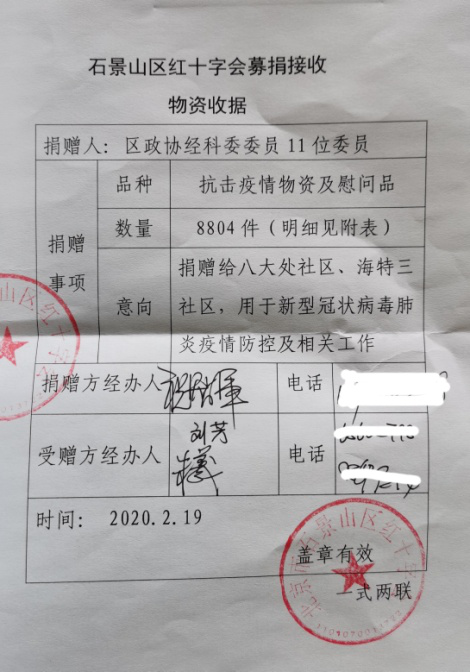 石景山区红十字会募捐接收
物资收据
捐赠人：区政协经科委委员11位委员
捐赠事项
品种 抗击疫情物资及慰问品
数量 8804件（明细见附表）
意向 捐赠给八大处社区、海特三
社区，用于新型冠状病毒肺
炎疫情防控及相关工作
捐赠方经办人 电话
受赠方经办人 刘芳 电话
时间： 2020.2.19
盖章有效
一式两联
山区红十字
北京市石景山区红十字会